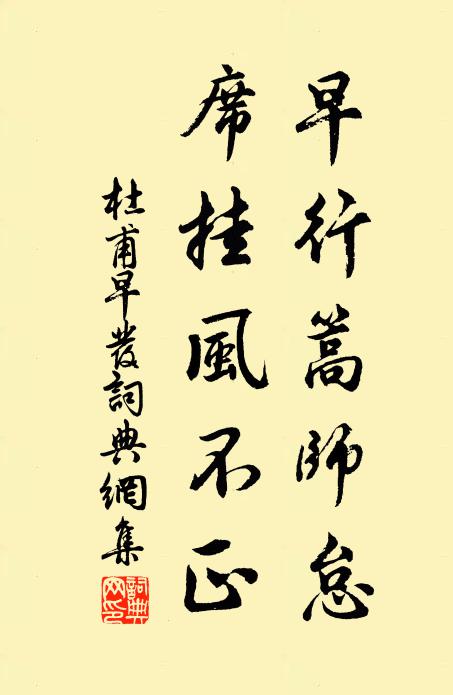 早行篙師怠
席挂風不正
杜甫早發詞典網集
詞典網印